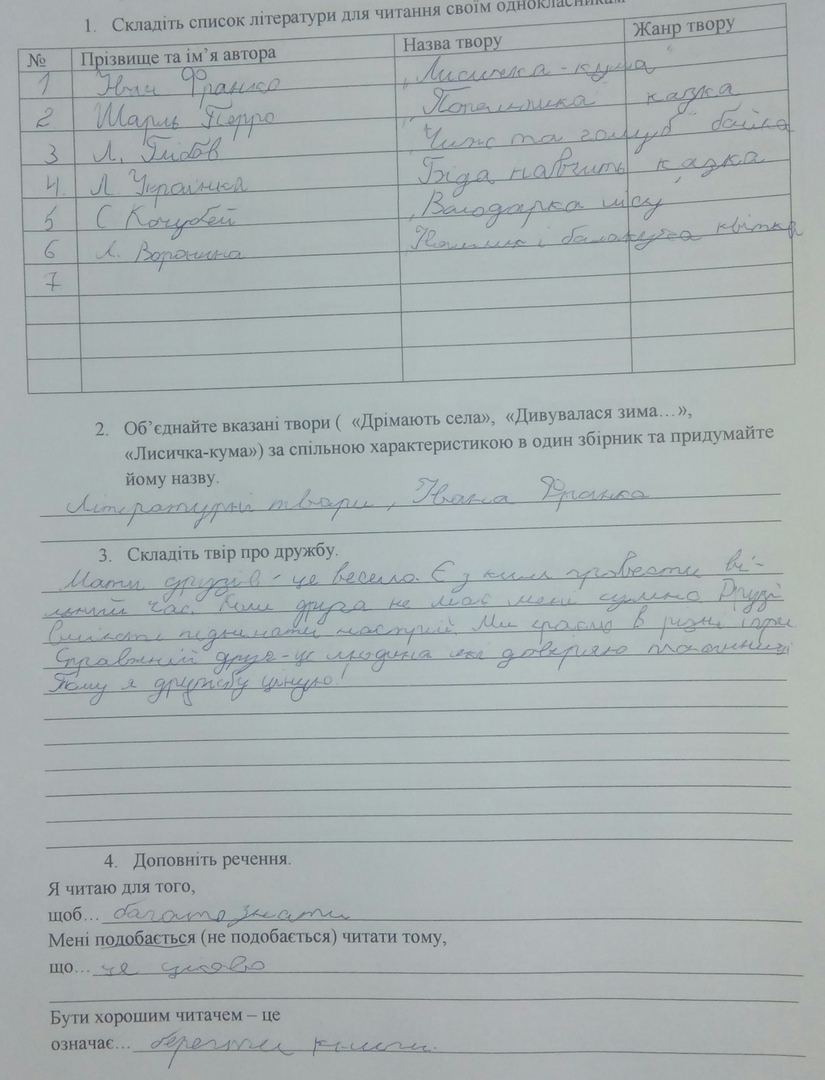 1. Складіть список літератури для читання своїм однокласникам
№ Прізвище та ім’я автора Назва твору Жанр твору
1 Іван Франко „Лисичка-кума
2 Шарль Перро „Попелюшка" казка
3 Л. Глібов „Чиж та голуб" байка
4. Л. Українка Біда навчить казка
5 С Кочубей „Володарка лісу"
6 Л. Воронина і балакуча квітка
7
2. Об’єднайте вказані твори ( «Дрімають села», «Дивувалася зима…»,
«Лисичка-кума») за спільною характеристикою в один збірник та придумайте
йому назву.
Літературні твори, Івана Франка
3. Складіть твір про дружбу.
Мати друзів - це весело. Є з ким провести ві-
льний час. Коли друга не має мені сумно Друзі
вміють піднімати настрій. Ми граємо в різні ігри
Справжній друг-це людина які довіряю
Тому я дружбу ціную!
4. Доповніть речення.
Я читаю для того,
щоб… багато знати
Мені подобається (не подобається) читати тому,
що… це цікаво
Бути хорошим читачем – це
означає… берегти книги.